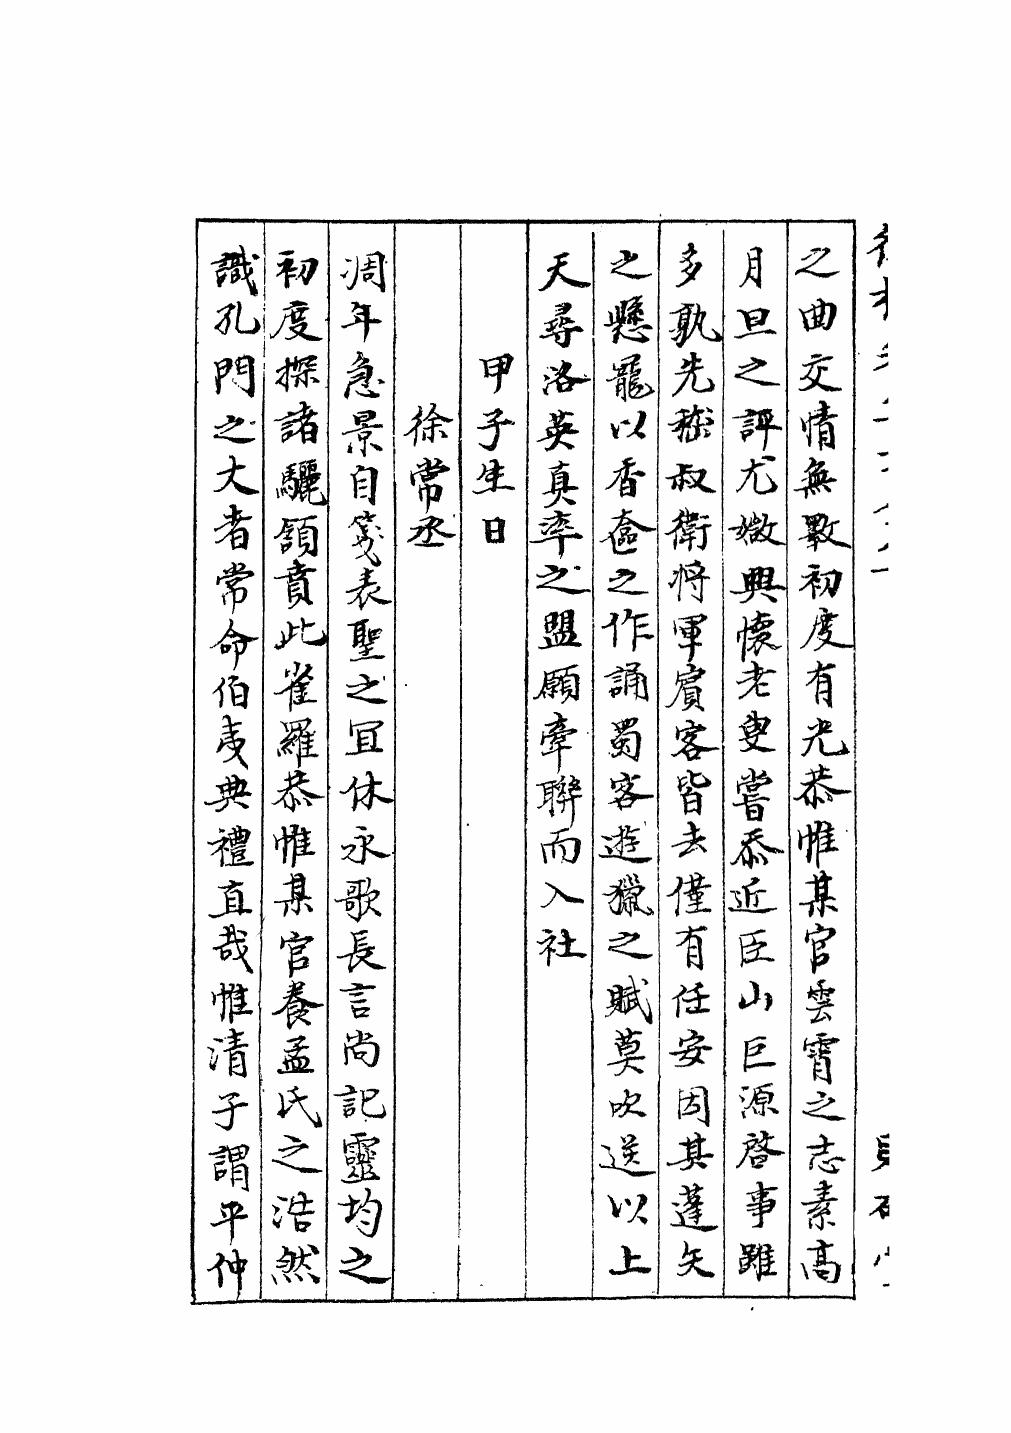 之曲交情無斁初度有光恭惟某官雲霄之志素高
月旦之評尤媺興懷老叟嘗忝近臣山巨源啓事雖
多孰先嵇叔衛將軍賓客皆去僅有任安因其蓬矢
之懸寵以香奩之作誦蜀客遊獵之賦莫吹送以上
天尋洛英真率之盟願牽聯而入社
甲子生日
徐常丞
凋年急景自箋表聖之宜休永歌長言尚記靈均之
初度探諸驪頷賁此雀羅恭惟某官養孟氏之浩然
識孔門之大者常命伯夷典禮直哉惟清子謂平仲